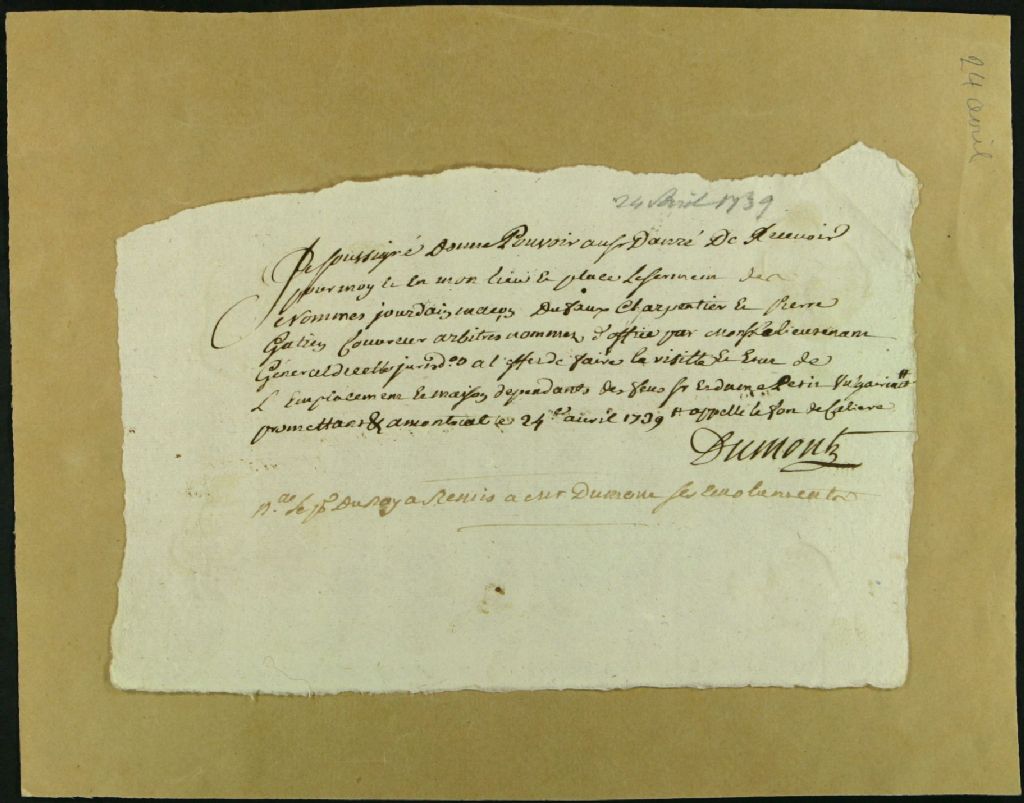 24 avril
24 Avril 1739
Je soussigné donne Pouvoir au Sr Danré De Recevoir
pour moy et en mon lieu et place Le serment des
Nommés jourdain maçon Dufaux Charpentier et Pierre
Gatien Couvreur arbitres nommés d'office par Monsr le lieutenant
General de cette jurisd.on a l'effet de faire la visitte et Etat de
L'Emplacement et maison dependants des feus Sr et dame Petit
promettant &c a montreal le 24e avril 1739 appelle le fon de
Dumont
Du Roy a Remis a mr Dumont ses emolumentes